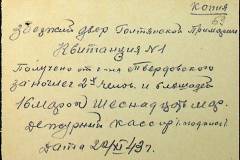 Копия
63
Заезжий двор Голтянской Примарии
Квитанция №1
Получено от г-на Твердовского
за ночлег 2х человек и лошадей
16 марок Шеснадцать мар.
Дежурный кассир (подпись)
Дата 22/XI 43 г.